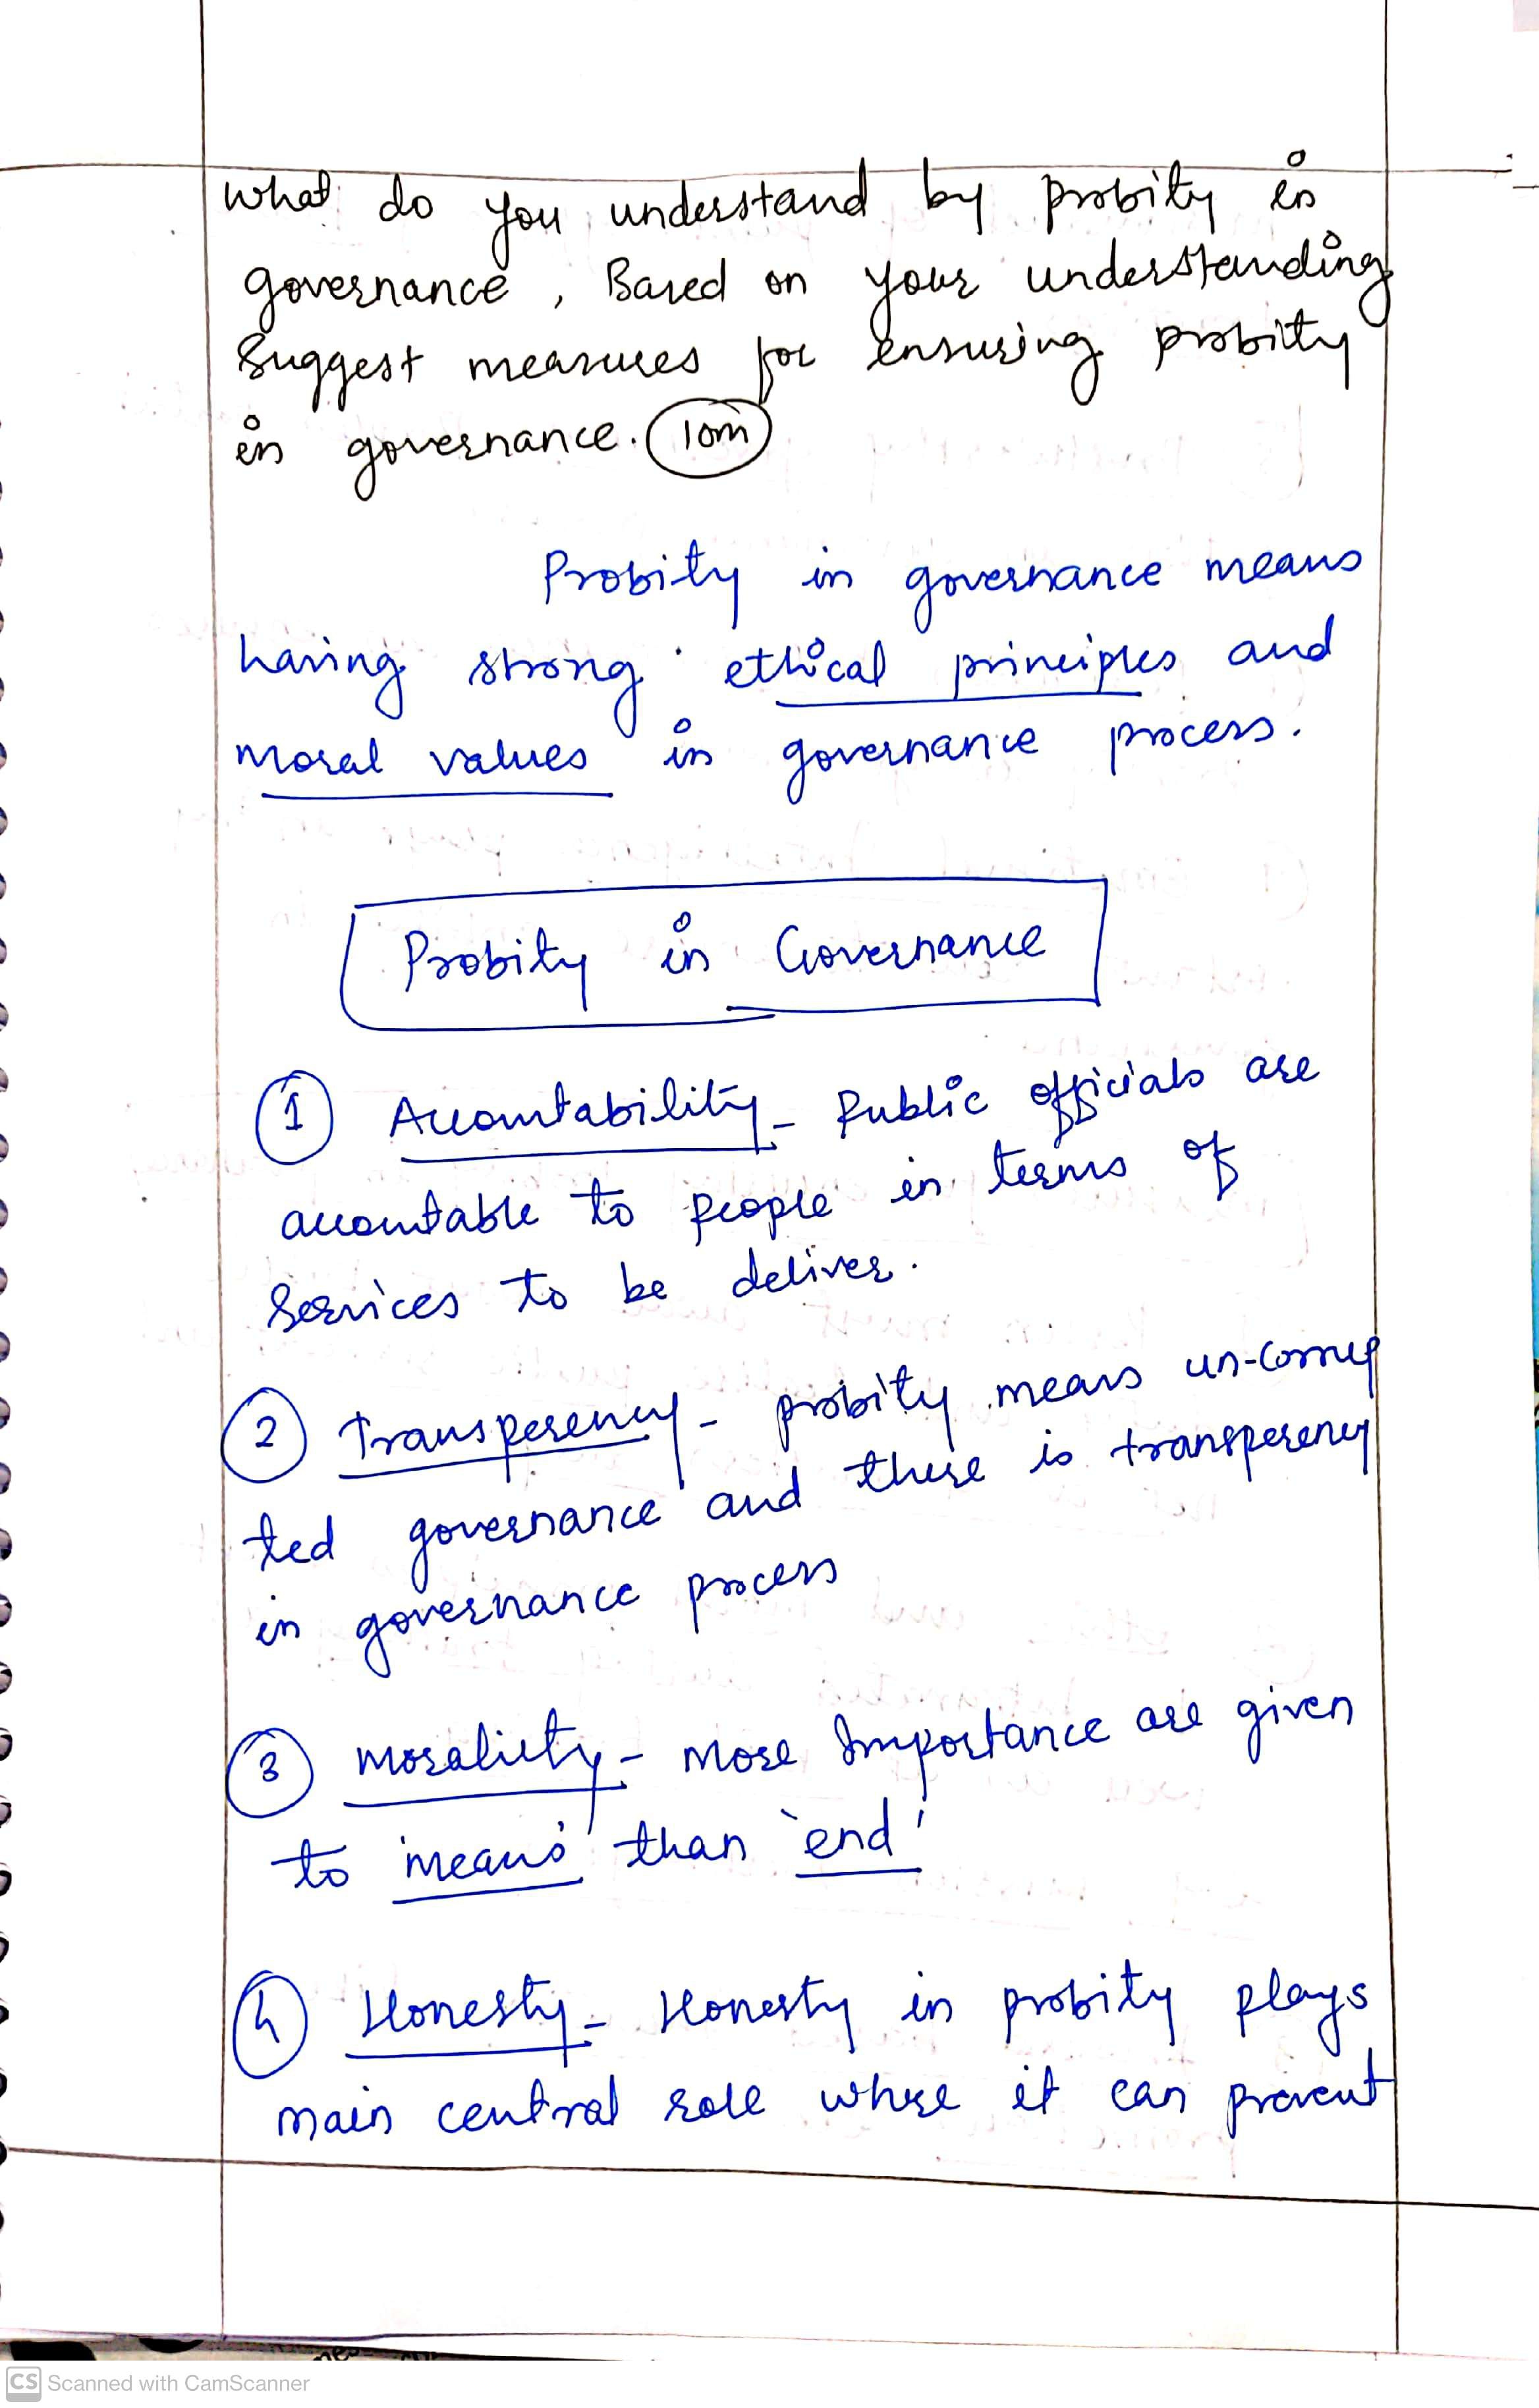 what do you understand by probity in
governance, Based on your understanding
Suggest measures for ensuring probity
in governance. 10m
Probity in governance means
having strong ethical principles and
moral values in governance process.
Probity in Governance
1 Accountability - Public officials are
accountable to people in terms of
services to be deliver.
2 Transperency - probity means un-corrup
ted governance and there is transperency
in governance process
3 moraliety - more Importance are given
to 'means' than 'end'
4 Honesty - Honesty in probity plays
main central role where it can prevent
CS Scanned with CamScanner